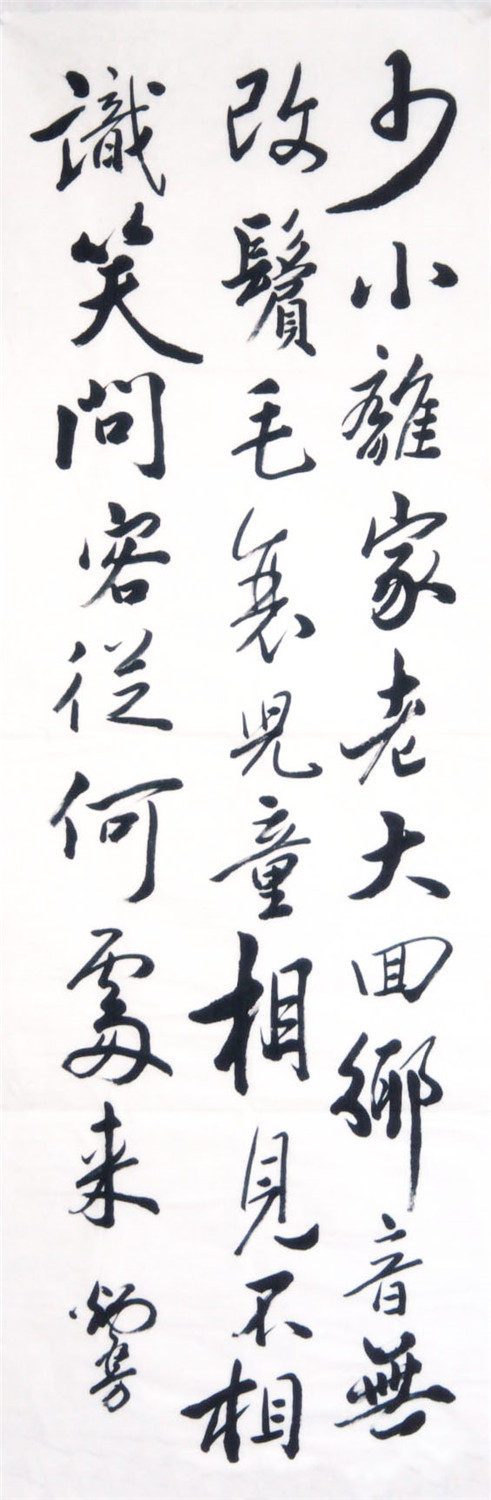 少小離家老大回鄉音無
改鬢毛衰兒童相見不相
識笑問客從何處来